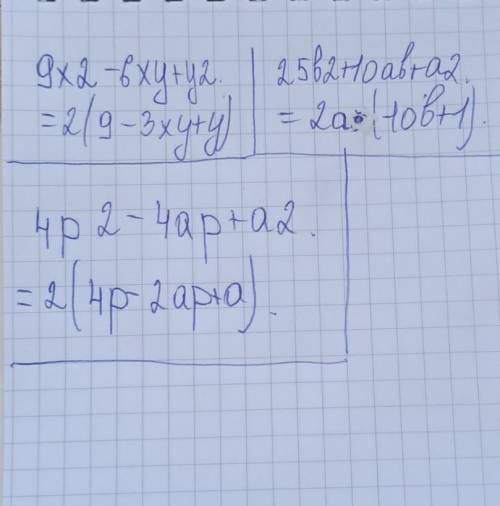 9x2-6xy+y2.
=2(9-3xy+y)
25в2+10ав+а2.
=2а(10в+1).
4p2-4ap+a2.
=2(4p-2ap+a).